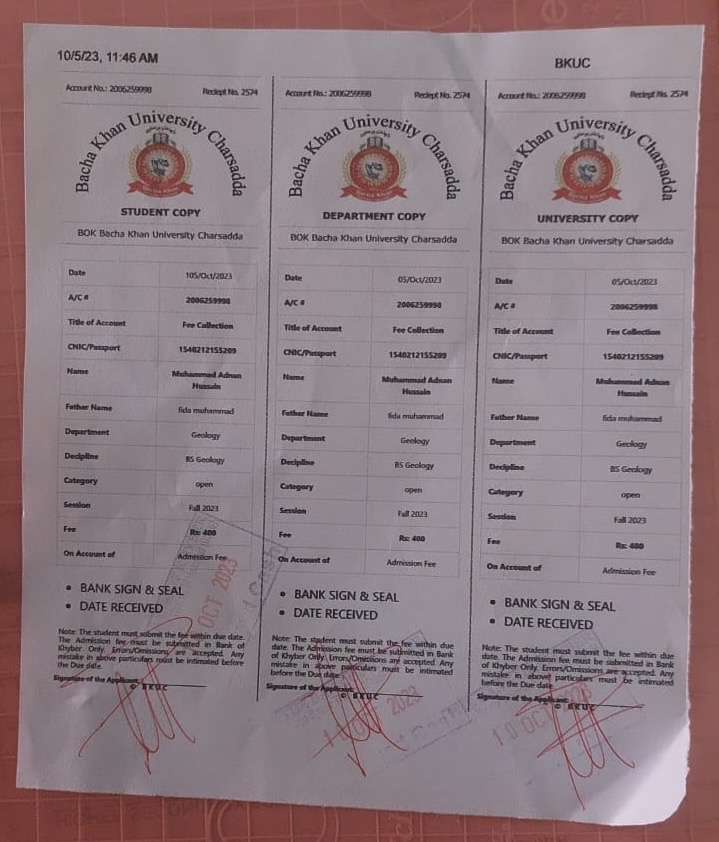 10/5/23, 11:46 AM
BKUC
Account No.: 2006259998 Reciept No. 2574
Bacha Khan University Charsadda
STUDENT COPY
BOK Bacha Khan University Charsadda
Date 105/Oct/2023
A/C # 2006259998
Title of Account Fee Collection
CNIC/Passport 1540212155209
Name Muhammad Adnan
Hussain
Father Name fida muhammad
Department Geology
Decipline BS Geology
Category open
Session Fall 2023
Fee Rs: 400
On Account of Admission Fee
• BANK SIGN & SEAL
• DATE RECEIVED
OCT 2023
Note: The student must submit the fee within due date.
The Admission fee must be submitted in Bank of
Khyber Only. Errors/Omissions are accepted. Any
mistake in above particulars must be intimated before
the Due date.
Signature of the Applicant
© BKUC
Account No.: 2006259998 Reciept No. 2574
Bacha Khan University Charsadda
DEPARTMENT COPY
BOK Bacha Khan University Charsadda
Date 05/Oct/2023
A/C # 2006259998
Title of Account Fee Collection
CNIC/Passport 1540212155209
Name Muhammad Adnan
Hussain
Father Name fida muhammad
Department Geology
Decipline BS Geology
Category open
Session Fall 2023
Fee Rs: 400
On Account of Admission Fee
• BANK SIGN & SEAL
• DATE RECEIVED
Note: The student must submit the fee within due
date. The Admission fee must be submitted in Bank
of Khyber Only. Errors/Omissions are accepted. Any
mistake in above particulars must be intimated
before the Due date.
Signature of the Applicant
© BKUC
2023
Account No.: 2006259998 Reciept No. 2574
Bacha Khan University Charsadda
UNIVERSITY COPY
BOK Bacha Khan University Charsadda
Date 05/Oct/2023
A/C # 2006259998
Title of Account Fee Collection
CNIC/Passport 1540212155209
Name Muhammad Adnan
Hussain
Father Name fida muhammad
Department Geology
Decipline BS Geology
Category open
Session Fall 2023
Fee Rs: 400
On Account of Admission Fee
• BANK SIGN & SEAL
• DATE RECEIVED
Note: The student must submit the fee within due
date. The Admission fee must be submitted in Bank
of Khyber Only. Errors/Omissions are accepted. Any
mistake in above particulars must be intimated
before the Due date.
Signature of the Applicant
© BKUC
10 OCT